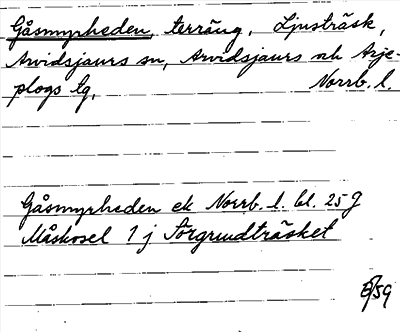 Gåsmyrheden, terräng, Ljusträsk,
Arvidsjaurs sn, Arvidsjaurs och Arje-
plogs lg, Norrb. l.
Gåsmyrheden ek Norrb. l. bl. 25 J
Måskosel 1 j Storgrundträsket
/59